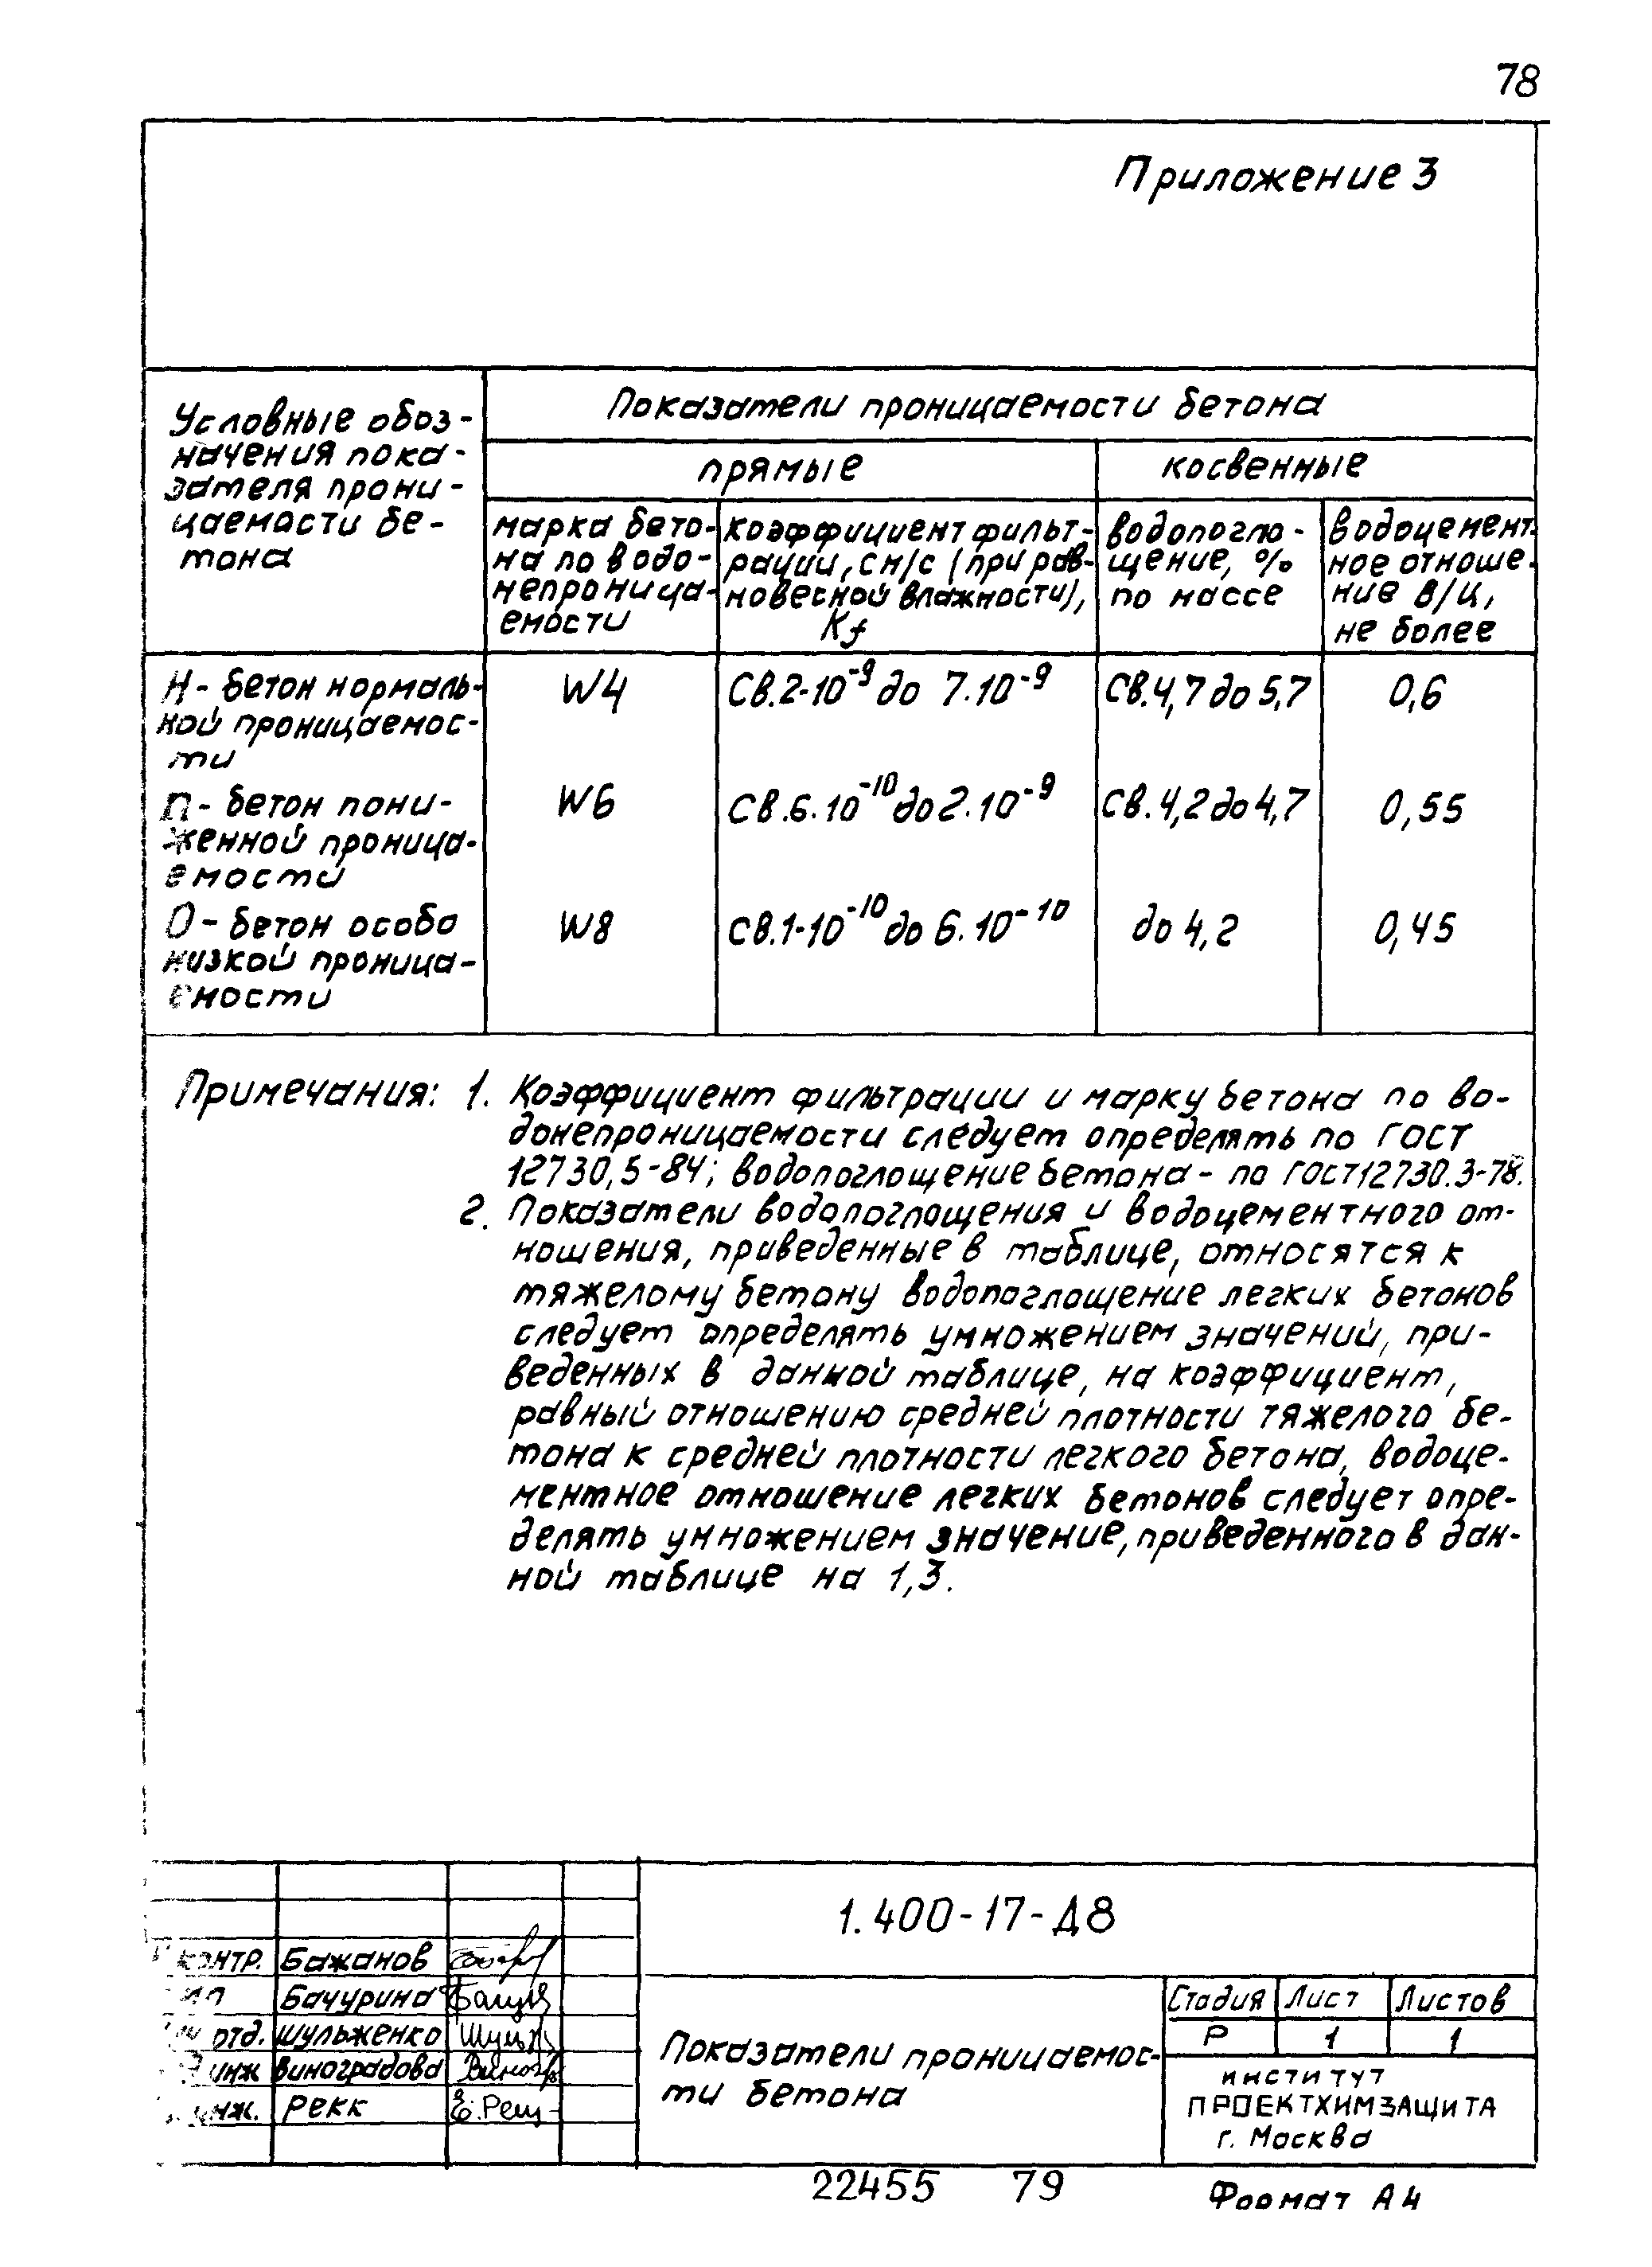 78
Приложение 3
Условные обоз-
начения пока-
зателя прони-
цаемости бе-
тона
Показатели проницаемости бетона
прямые
косвенные
марка бето-
на по водо-
непроница-
емости
коэффициент фильт-
рации, см/с (при рав-
новесной влажности),
Kf
водопогло-
щение, %
по массе
водоцемент-
ное отноше-
ние В/Ц,
не более
Н - бетон нормаль-
ной проницаемос-
ти
W4
Св.2·10⁻⁹ до 7·10⁻⁹
Св.4,7 до 5,7
0,6
П - бетон пони-
женной проница-
емости
W6
Св.6·10⁻¹⁰ до 2·10⁻⁹
Св.4,2 до 4,7
0,55
О - бетон особо
низкой проница-
емости
W8
Св.1·10⁻¹⁰ до 6·10⁻¹⁰
до 4,2
0,45
Примечания: 1. Коэффициент фильтрации и марку бетона по во-
донепроницаемости следует определять по ГОСТ
12730,5-84; водопоглощение бетона - по ГОСТ 12730.3-78.
2. Показатели водопоглощения и водоцементного от-
ношения, приведенные в таблице, относятся к
тяжелому бетону водопоглощение легких бетонов
следует определять умножением значений, при-
веденных в данной таблице, на коэффициент,
равный отношению средней плотности тяжелого бе-
тона к средней плотности легкого бетона, водоце-
ментное отношение легких бетонов следует опре-
делять умножением значение, приведенного в дан-
ной таблице на 1,3.
1.400-17-Д8
контр. Бажанов
Бачурина Бачур
отд. Шульженко Шульж
инж Виноградова Виногр
инж. Рекк Е.Рекк
Показатели проницаемос-
ти бетона
Стадия Лист Листов
Р 1 1
институт
ПРОЕКТХИМЗАЩИТА
г. Москва
22455 79
Формат А4